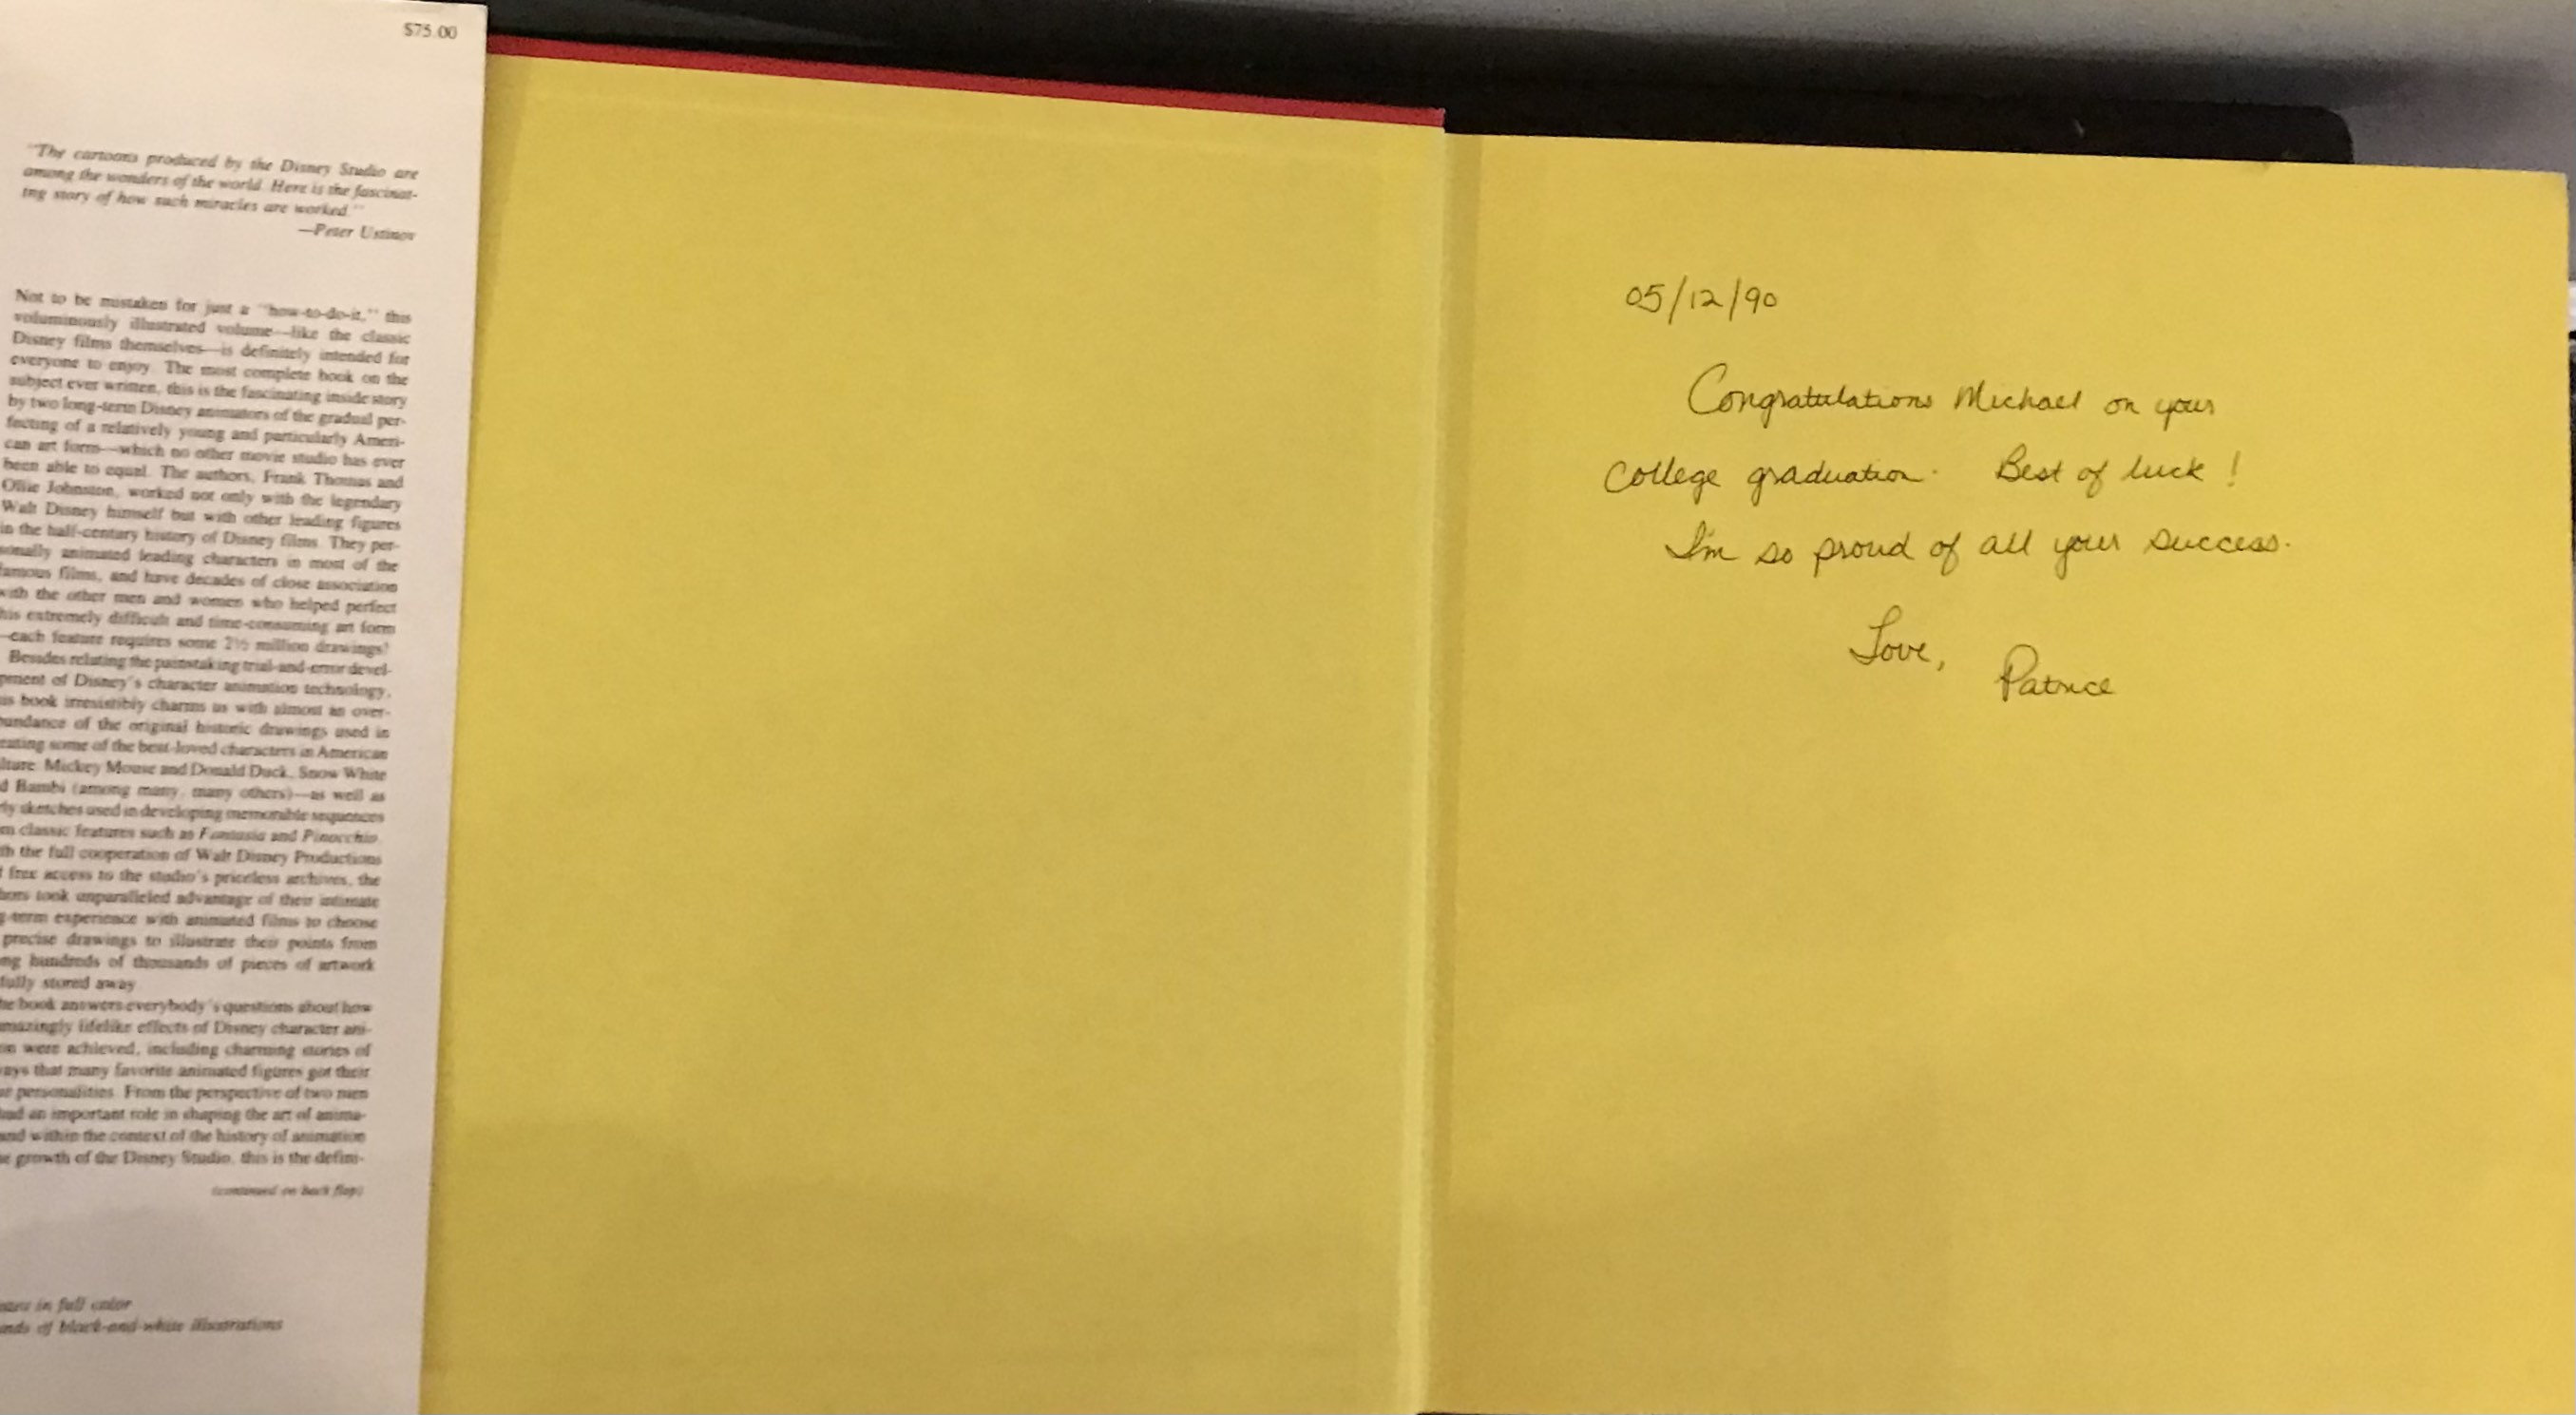 $75.00
"The cartoons produced by the Disney Studio are
among the wonders of the world. Here is the fascinat-
ing story of how such miracles are worked."
—Peter Ustinov
Not to be mistaken for just a "how-to-do-it," this
voluminously illustrated volume—like the classic
Disney films themselves—is definitely intended for
everyone to enjoy. The most complete book on the
subject ever written, this is the fascinating inside story
by two long-term Disney animators of the gradual per-
fecting of a relatively young and particularly Ameri-
can art form—which no other movie studio has ever
been able to equal. The authors, Frank Thomas and
Ollie Johnston, worked not only with the legendary
Walt Disney himself but with other leading figures
in the half-century history of Disney films. They per-
sonally animated leading characters in most of the
famous films, and have decades of close association
with the other men and women who helped perfect
his extremely difficult and time-consuming art form
—each feature requires some 2½ million drawings!
Besides relating the painstaking trial-and-error devel-
pment of Disney's character animation technology,
is book irresistibly charms us with almost an over-
bundance of the original historic drawings used in
eating some of the best-loved characters in American
lture: Mickey Mouse and Donald Duck, Snow White
d Bambi (among many, many others)—as well as
ly sketches used in developing memorable sequences
m classic features such as Fantasia and Pinocchio.
th the full cooperation of Walt Disney Productions
free access to the studio's priceless archives, the
hors took unparalleled advantage of their intimate
g-term experience with animated films to choose
precise drawings to illustrate their points from
ng hundreds of thousands of pieces of artwork
fully stored away.
he book answers everybody's questions about how
mazingly lifelike effects of Disney character ani-
on were achieved, including charming stories of
ays that many favorite animated figures got their
e personalities. From the perspective of two men
had an important role in shaping the art of anima-
and within the context of the history of animation
e growth of the Disney Studio, this is the defini-
(continued on back flap)
in full color
nds of black-and-white illustrations
05/12/90
Congratulations Michael on your
College graduation. Best of luck!
I'm so proud of all your success.
Love,
Patrice